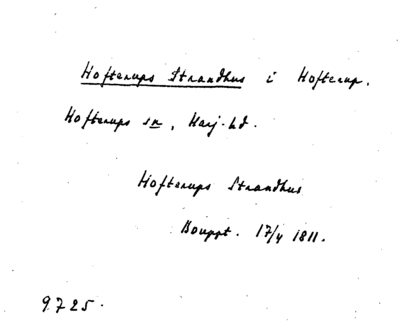 Hofterups Strandhus i Hofterup.
Hofterups sn, Harj. hd.
Hofterups Strandhus
Bouppt. 17/4 1811.
9725.